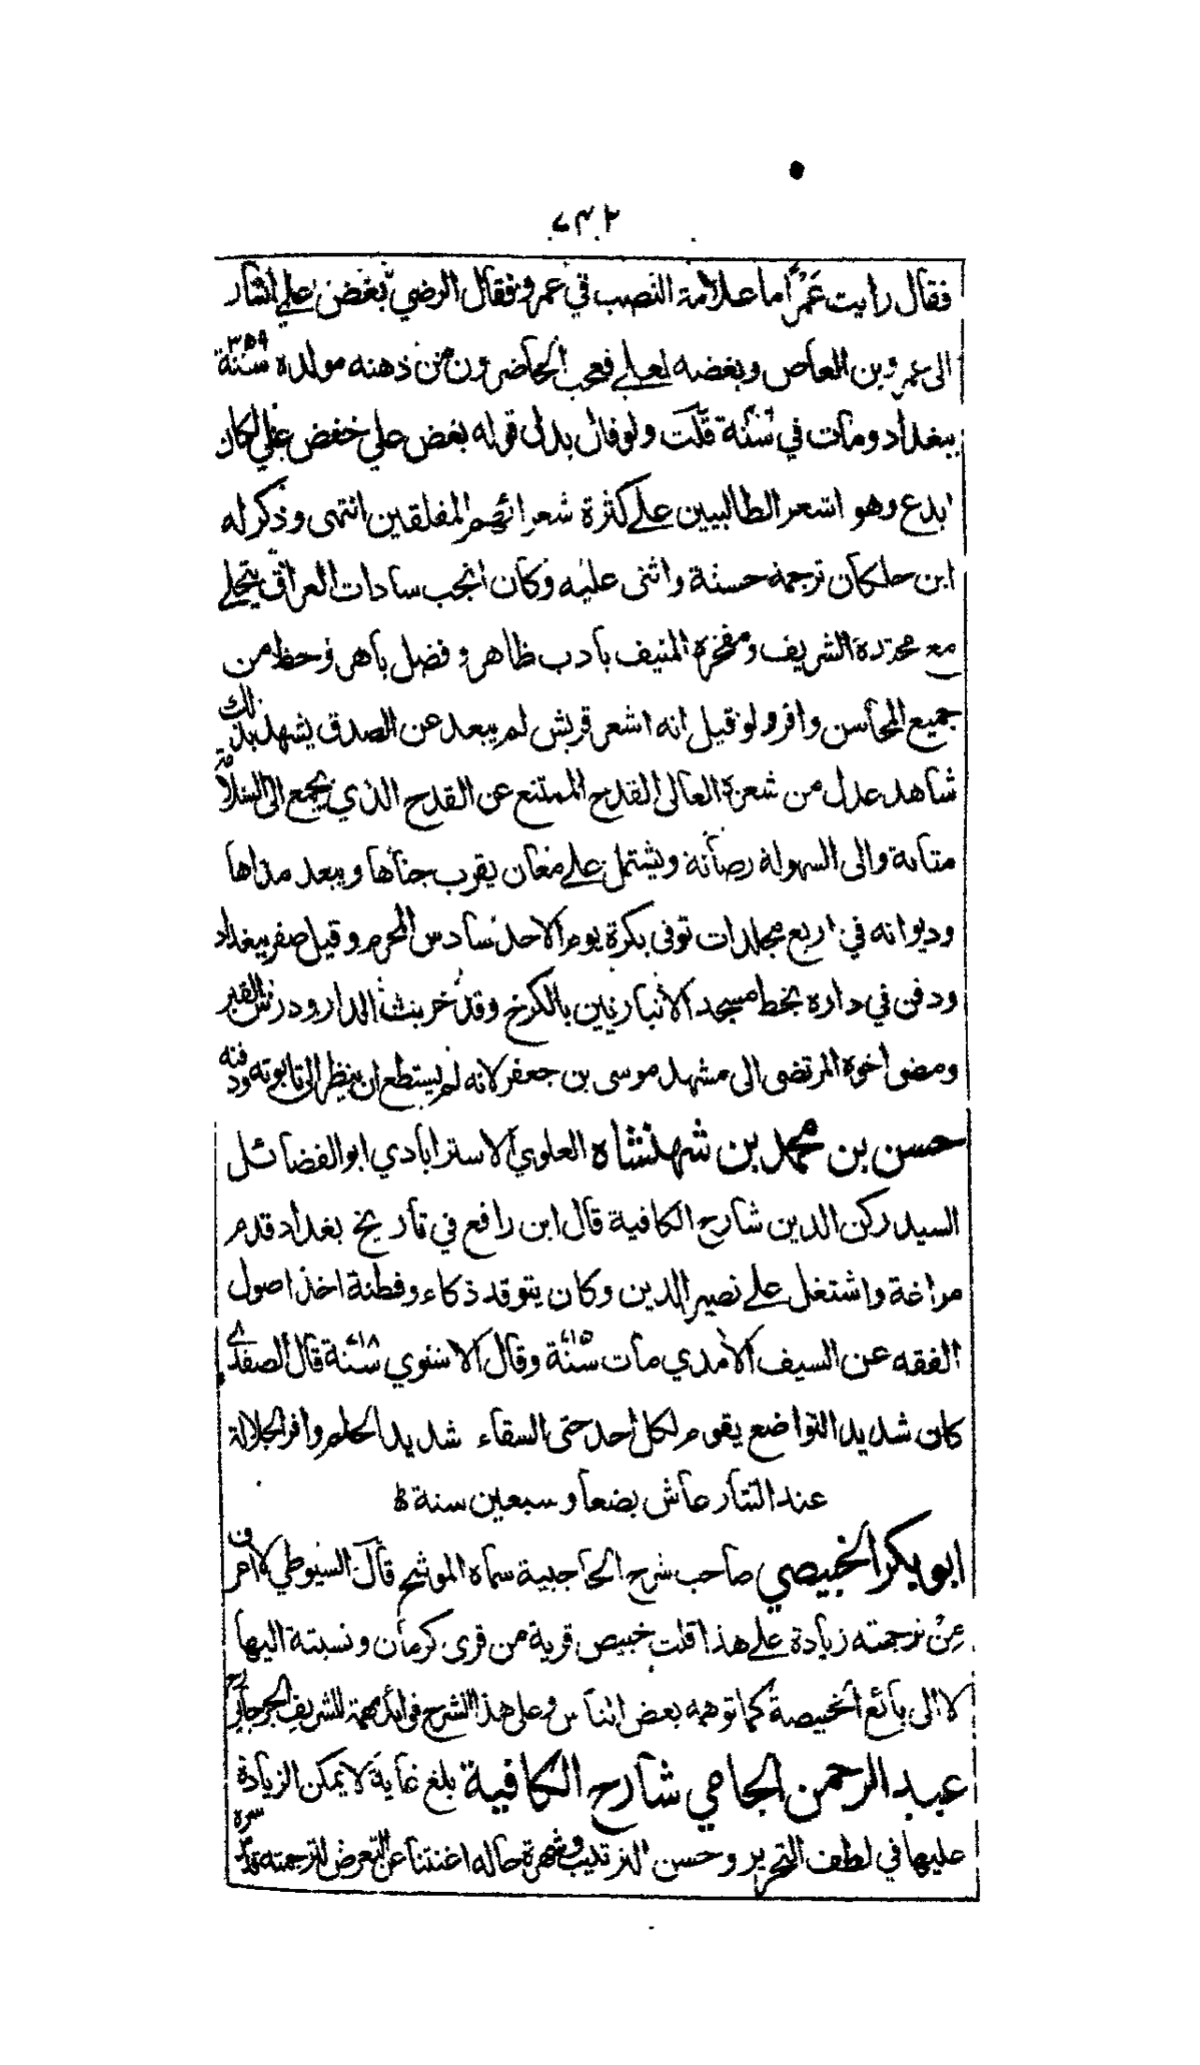 ٧٣٢
فقال رايت عَمْرًا ما علامة النصب في عمرو فقال الرضي بغض علي اشار
الى عمرو بن العاص وبغضه لعلي فعجب الحاضرون من ذهنه مولده سنة ٣٥٩
ببغداد ومات في سنة قلت ولو قال بدل قوله بغض علي خفض علي لكان
ابدع وهو اشعر الطالبيين على كثرة شعرائهم المفلقين انتهى وذكر له
ابن خلكان ترجمة حسنة واثنى عليه وكان انجب سادات العراق يتحلى
مع محتده الشريف ومفخره المنيف بادب ظاهر وفضل باهر وحظ من
جميع المحاسن وافر ولو قيل انه اشعر قريش لم يبعد عن الصدق يشهد بذلك
شاهد عدل من شعره العالي القدح الممتنع عن القدح الذي يجمع الى السلاسة
متانة والى السهولة رصانة ويشتمل على معان يقرب جناها ويبعد مداها
وديوانه في اربع مجلدات توفى بكرة يوم الاحد سادس المحرم وقيل صفر ببغداد
ودفن في داره بخط مسجد الانباريين بالكرخ وقد خربت الدار ودرس القبر
ومضى اخوه المرتضى الى مشهد موسى بن جعفر لانه لم يستطع ان ينظر الى تابوته ودفنه
حسن بن محمد بن شهنشاه العلوي الاسترابادي ابو الفضائل
السيد ركن الدين شارح الكافية قال ابن رافع في تاريخ بغداد قدم
مراغة واشتغل على نصير الدين وكان يتوقد ذكاء وفطنة اخذ اصول
الفقه عن السيف الآمدي مات سنة ٧١٥ وقال الاسنوي سنة ٧١٨ قال الصفدي
كان شديد التواضع يقوم لكل احد حتى السقاء شديد الحلم وافر الجلالة
عند التتار عاش بضعا وسبعين سنة
ابو بكر الخبيصي صاحب شرح الحاجبية سماه الموشح قال السيوطي لا اعرف
من ترجمته زيادة على هذا قلت خبيص قرية من قرى كرمان ونسبته اليها
لا الى بائع الخبيصة كما توهمه بعض الناس وعلى هذا الشرح فوائد مهمة للشريف الجرجاني
عبد الرحمن الجامي شارح الكافية بلغ غاية لا يمكن الزيادة
عليها في لطف التحرير وحسن الترتيب وشهرة حاله اغنتنا عن التعرض لترجمته